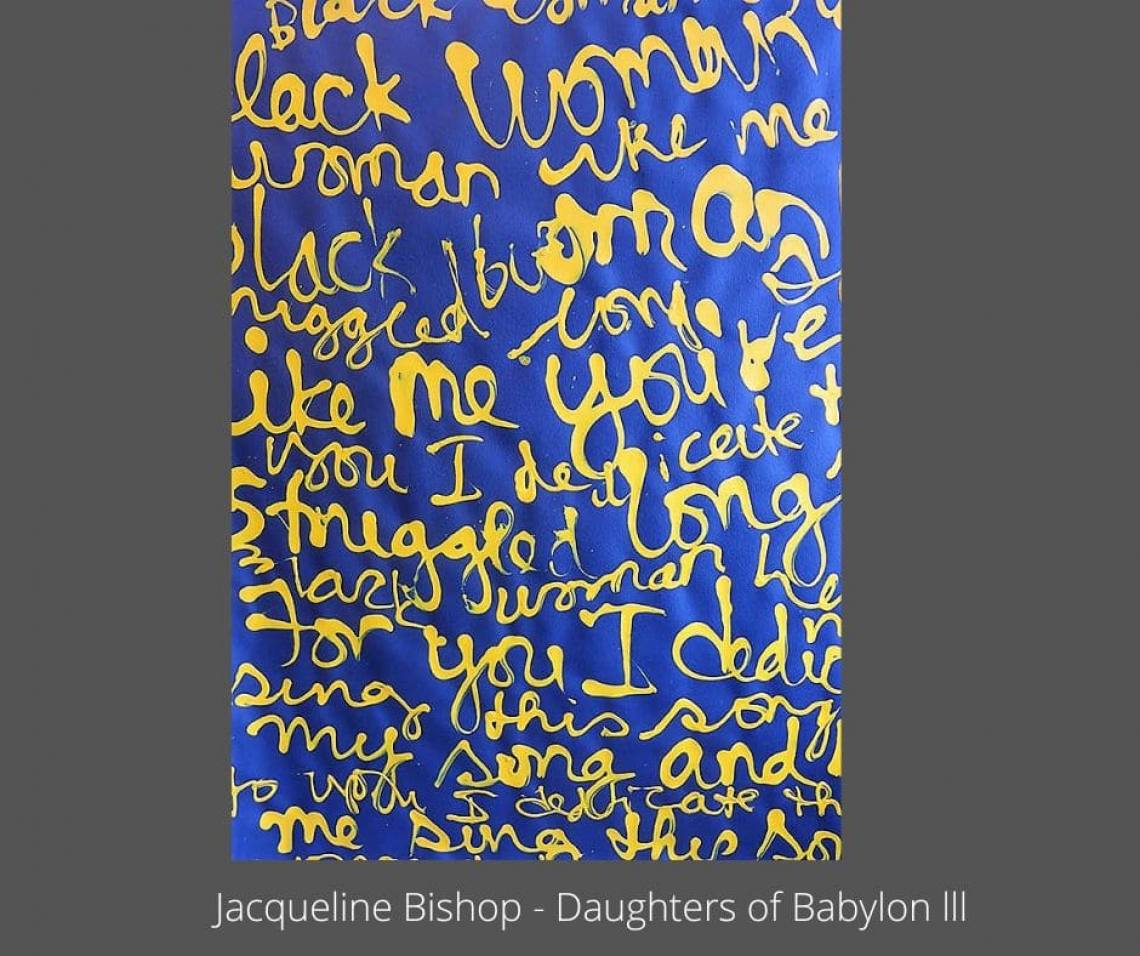 Black Woman
lack Woman
woman like me
black woman
ruggled long
ike me you
you I dedicate t
struggled long
black woman
for you I dedic
sing this song
my song and
to you I dedicate th
me sing this so
Jacqueline Bishop - Daughters of Babylon lll